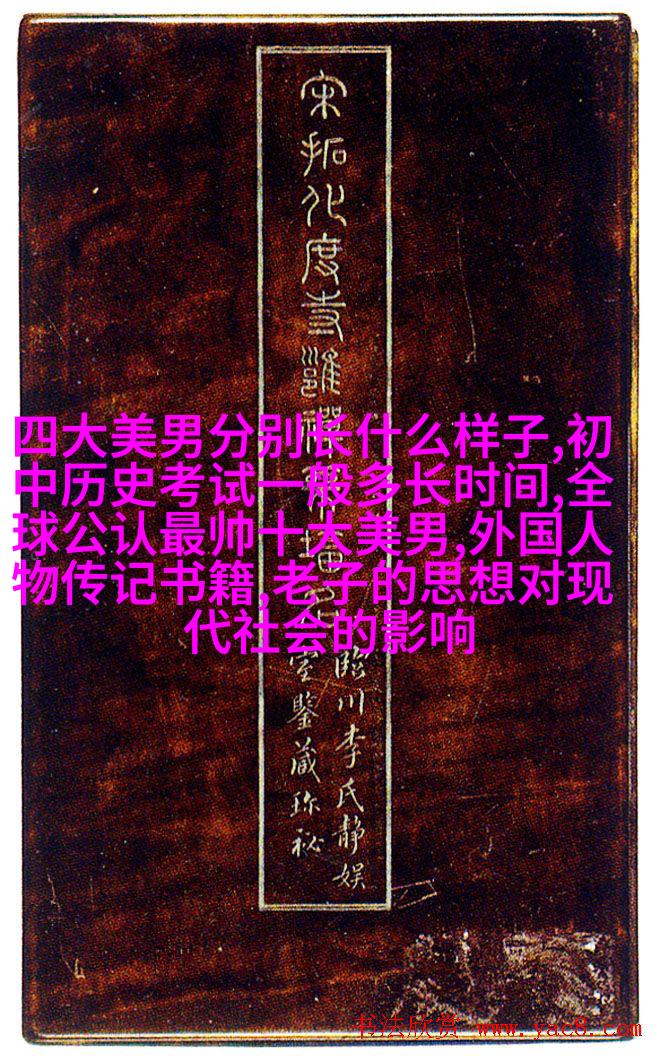 宋拓化度寺邕禅师塔名
臨川李氏靜娱
室鑒藏珎祕
四大美男分别长什么样子,初
中历史考试一般多长时间,全
球公认最帅十大美男,外国人
物传记书籍,老子的思想对现
代社会的影响
书法欣赏 www.yac8.com